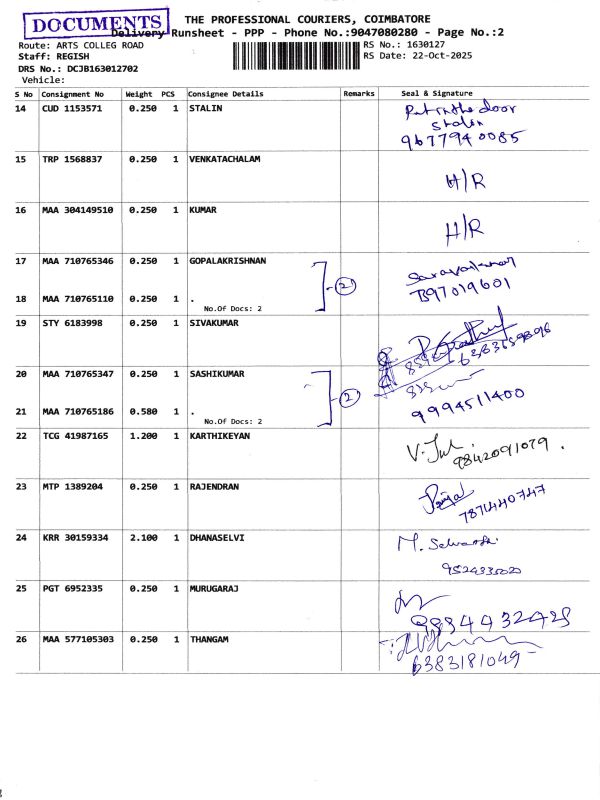 DOCUMENTS
THE PROFESSIONAL COURIERS, COIMBATORE
Delivery Runsheet - PPP - Phone No.:9047080280 - Page No.:2
Route: ARTS COLLEG ROAD
RS No.: 1630127
Staff: REGISH
RS Date: 22-Oct-2025
DRS No.: DCJB163012702
Vehicle:
S No Consignment No Weight PCS Consignee Details Remarks Seal & Signature
14 CUD 1153571 0.250 1 STALIN
Put in the door
Stalin
9677940085
15 TRP 1568837 0.250 1 VENKATACHALAM
H/R
16 MAA 304149510 0.250 1 KUMAR
H/R
17 MAA 710765346 0.250 1 GOPALAKRISHNAN
2
18 MAA 710765110 0.250 1 .
No.Of Docs: 2
19 STY 6183998 0.250 1 SIVAKUMAR
20 MAA 710765347 0.250 1 SASHIKUMAR
2
21 MAA 710765186 0.580 1 .
9994511400
No.Of Docs: 2
22 TCG 41987165 1.200 1 KARTHIKEYAN
9842091079.
23 MTP 1389204 0.250 1 RAJENDRAN
7871440747
24 KRR 30159334 2.100 1 DHANASELVI
25 PGT 6952335 0.250 1 MURUGARAJ
26 MAA 577105303 0.250 1 THANGAM
6383181049